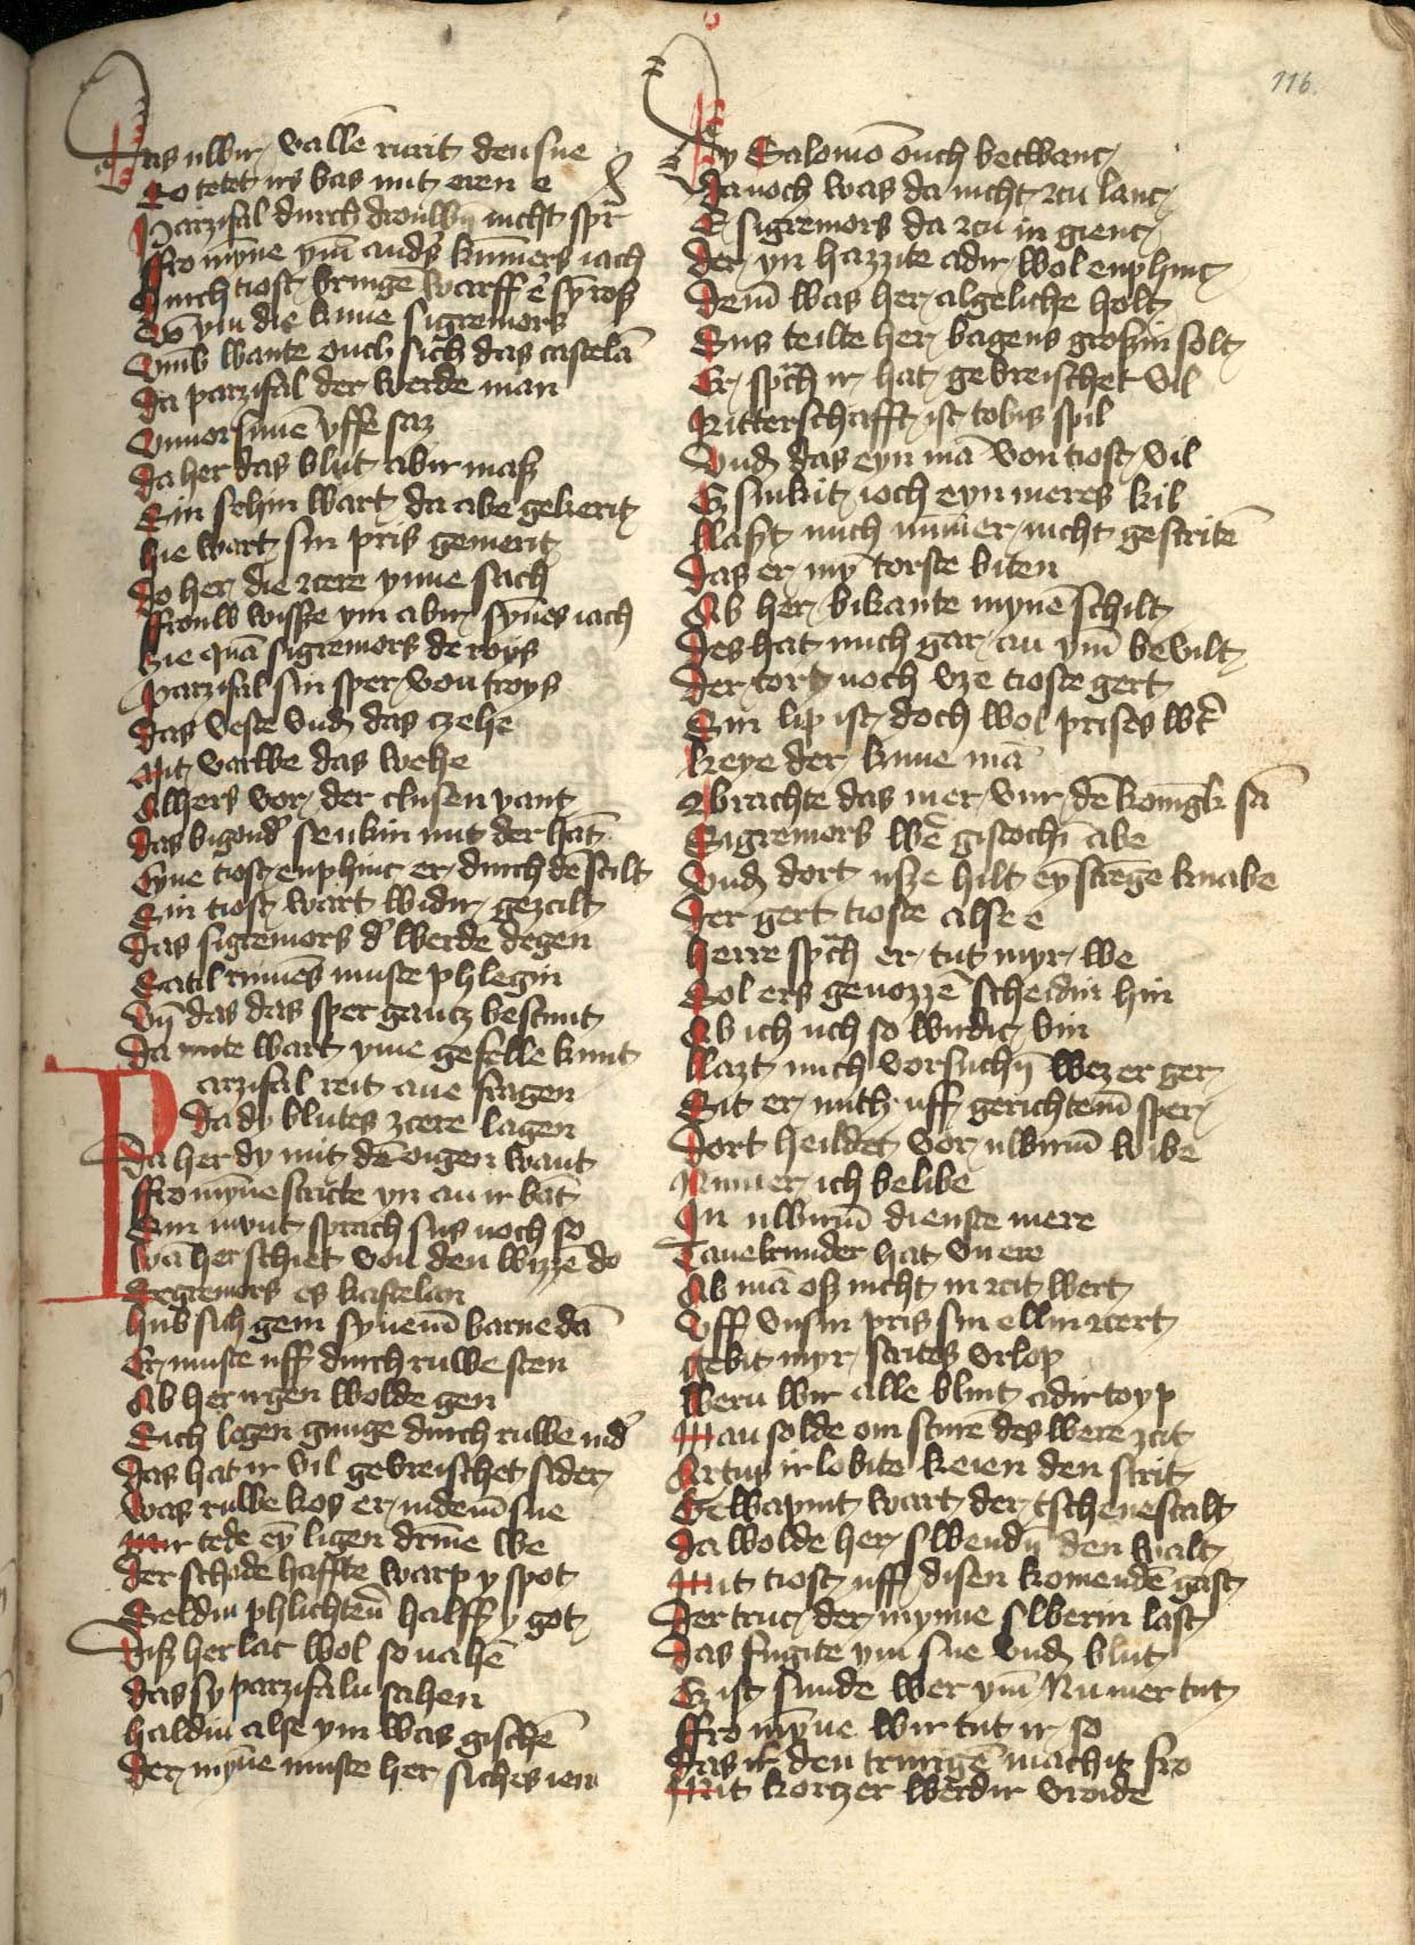 116.
Das uwir vallē rurit den sne
So tetet irs bas mit eren e
Parzifal durch drouwē nicht spᵃch
ffro mȳne ym̄ ander kūmers iach
Durch tiost bringē warff er sȳ ros
Vō ym die kune sigremors
Vmb wante ouch sich das castelā
Da parzifal der werde man
Vnuorsunē vffe saz
Da her das blut abir maß
Sin sehin wart da abe gekerit
Hie wart sin pris gemerit
Do her die zcere ynne sach
ffrouw wisse ym abir synnes iach
Hie quā sigremors de roys
Parzifal sin sper von troys
Das veste vnd das czehe
Mit varwe das wehe
Alhers vor der clusen vant
Das bigonder senkin mit der hāt
Eyne tiost enphinc er durch dē scilt
Sin tiost wart widir gezcilt
Das sigremors der werde degen
Satil rumēs muste phlegin
Vn̄ das das sper gantz bestunt
Da mite wart yme gefelle kunt
Parzifal reit ane fragen
Da dy blutes zcere lagen
Da her dy mit dē ougen want
ffro mȳne stricte yn an ir bāt
Sin munt sprach sus noch so
Wā her schiet von den wizzē do
Segremors es kastelan
Hub sich gein synem̄ barne dā
Er muste uff durch ruwe sten
Ab her irgen wolde gen
Sich legen gnuge durch ruwe nider
Das hat ir vil gevreischet sider
Was ruwe kos er in dem̄ sne
Mir tede eȳ ligen drīne we
Der schade haffte warp y spot
Seldin phlichtern̄ halff y got
Diß her lac wol so nahē
Das sy parzifaln sahen
Haldin alse ym was gischē
Der mȳne muste her siches ien
Dy Salomō ouch betwanc
Danoch was da nicht zcu lanc
E sigremors da zcu in gienc
Der yn hazzite adir wol enphinc
Dem̄ was her algeliche holt
Sus teilte her bagens großin solt
Er spᵃch ir hat gevreischet vil
Ritterschafft ist tobis spil
Vnd das eyn mā von tiost vil
Ez sinkit ioch eyn meres kil
Laßt mich nūmer nicht gestritē
Das er mȳ torste biten
Ab her bikante mynē schilt
Des hat mich gar an ym̄ bevilt
Der dort noch vze tioste gert
Sin lip ist doch wol prises wert
Keye der kune mā
Brachte das mer vur dē konigk sā
Sigremors wer gistochī abe
Vnd dort usze hilt eȳ strēge knabe
Der gert tioste alse e
Herre spᵃch er tut myr we
Sol ers genozzē scheidin hin
Ab ich uch so wirdic bin
Lazt mich vorsuchī wez er ger
Sit er mith uff gerichtem̄ sper
Dort heildet vor uwirm̄ wibe
Nimer ich belibe
In uwirm̄ dienste mere
Tauelrunder hat vnere
Ab mā oß nicht in zcit wert
Vff vnsin pris sin ellin zcert
Gebit myr strites vrlop
Wern wir alle blint adir toyp
Man solde om sturē des were zcit
Artus irlobite keien den strit
Gewapint wart der tschenescalt
Da wolde her swendn̄ den walt
Mit tiost uff disen komendē gast
Der truc der mynne swerin last
Das fugite ym sne vnd blut
Ez ist sunde wer ym̄ Nu mer tut
ffro mȳne wir tut ir so
Das ir den trurigē machit fro
Mit kortzer werdir vroide